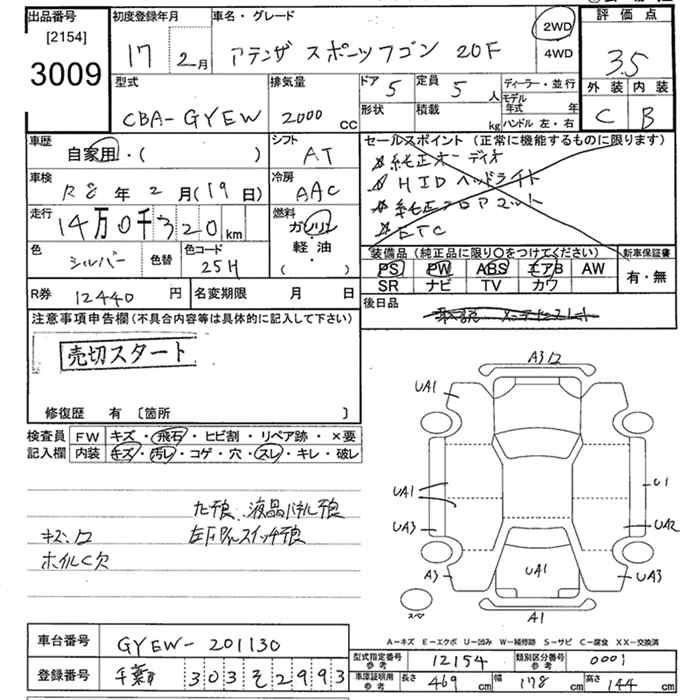 出品番号 初度登録年月 車名・グレード 評価点
[2154]
3009
17 2月 アテンザ スポーツワゴン 20F 2WD 4WD 3.5
型式 排気量 ドア 5 定員 5人 ディーラー・並行 外装 内装
CBA-GYEW 2000cc 形状 積載 kg モデル年式 年 ハンドル 左・右 C B
車歴 シフト セールスポイント (正常に機能するものに限ります)
自家用・( ) AT 純正オーディオ
車検 冷房 HIDヘッドライト
R8年2月(19日) AAC 純正フロアマット
走行 14万0千320km 燃料 ETC
ガソリン
軽・油
( ・ )
色 シルバー 色替 色コード 25H
装備品(純正品に限り○をつけてください) 新車保証書
PS PW ABS エアB AW 有・無
SR ナビ TV カワ
R券 12440円 名変期限 月 日 後日品
注意事項申告欄(不具合内容等は具体的に記入して下さい)
売切スタート
修復歴 有 [箇所 ]
検査員 FW キズ・飛石・ヒビ割・リペア跡・×要
記入欄 内装 キズ・汚レ・コゲ・穴・スレ・キレ・破レ
液晶パネル
キズ
ホイルC欠
A3
UA1
UA1
UA3
A3
U1
UA2
UA3
UA1
A1
スペ
A-キズ E-エクボ U-凹み W-補修跡 S-サビ C-腐食 XX-交換済
車台番号 GYEW-201130
型式指定番号 参考 12154 類別区分番号 参考 0001
登録番号 千葉 303 そ 2993
車庫証明用 参考 長さ 469cm 幅 178cm 高さ 144cm